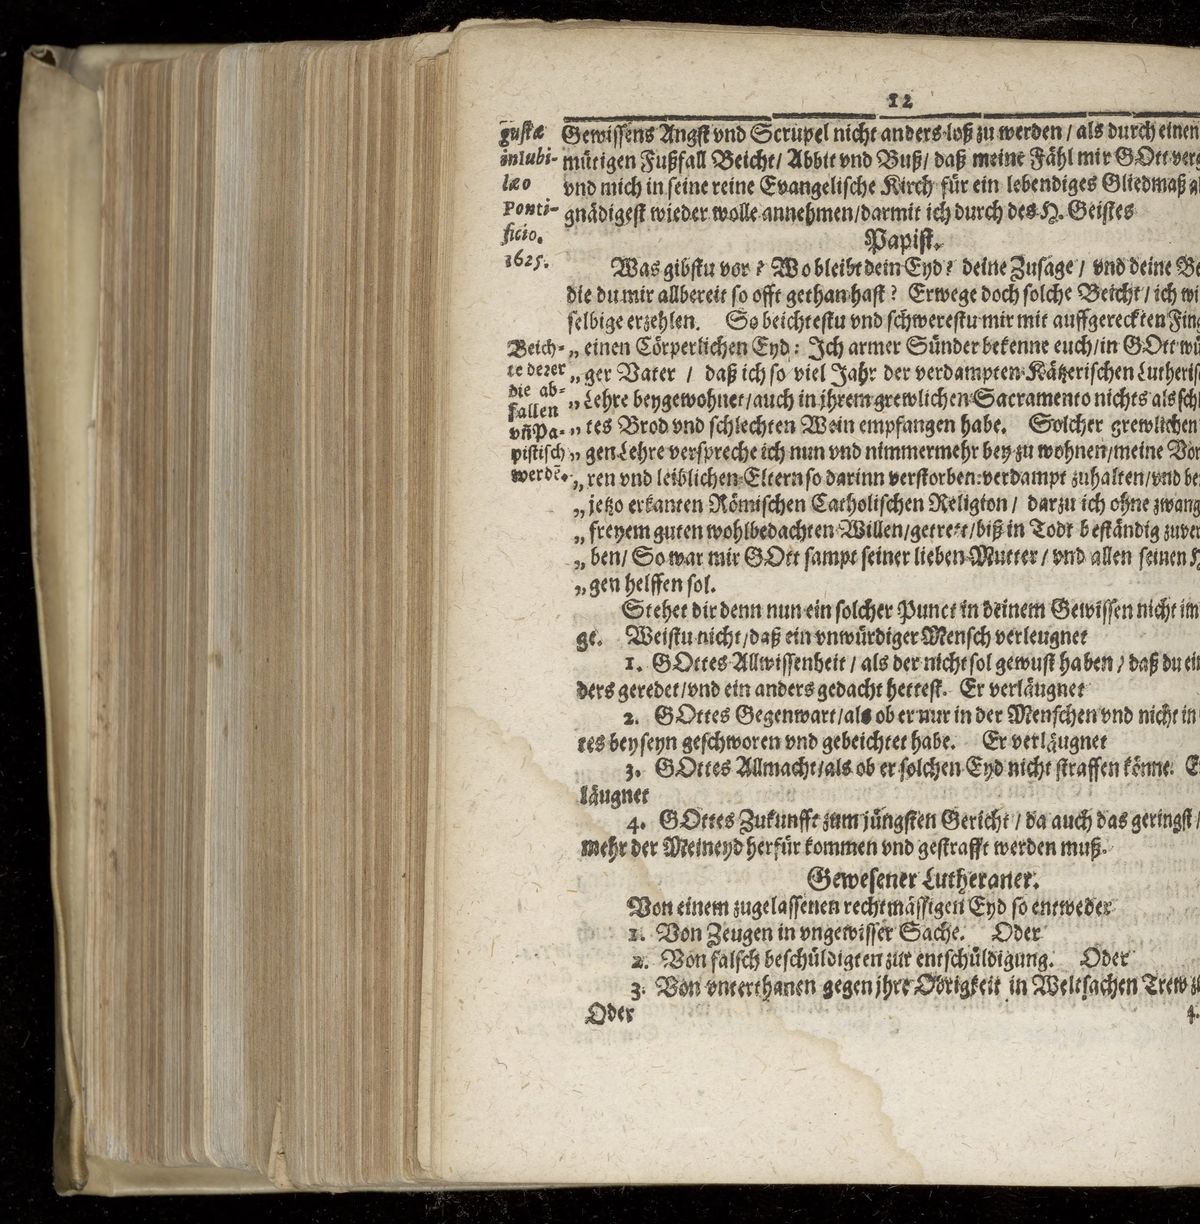 12
gustæ
in Iubi-
læo
Ponti-
ficio.
1625.
Gewissens Angst vnd Scrupel nicht anders loß zu werden / als durch einen
mütigen Fußfall Beicht / Abbit vnd Buß / daß meine Fähl mir GOtt
vnd mich in seine reine Evangelische Kirch für ein lebendiges Gliedmaß
gnädigest wieder wolle annehmen / darmit ich durch des H. Geistes
Papist.
Was gibstu vor? Wo bleibt dein Eyd? deine Zusage / vnd deine
die du mir allbereit so offt gethan hast? Erwege doch solche Beicht / ich
selbige erzehlen. So beichtestu vnd schwerestu mir mit auffgereckten
Beich-
te derer
die ab-
fallen
vñ Pa-
pistisch
werdẽ.
„ einen Cörperlichen Eyd: Jch armer Sünder bekenne euch / in GOtt
„ ger Vater / daß ich so viel Jahr der verdampten Kätzerischen
„ Lehre beygewohnet / auch in jhrem grewlichen Sacramento nichts als
„ tes Brod vnd schlechten Wein empfangen habe. Solcher grewlichen
„ gen Lehre verspreche ich nun vnd nimmermehr bey zu wohnen / meine
„ ren vnd leiblichen Eltern so darinn verstorben verdampt zuhalten / vnd
„ jetzo erkanten Römischen Catholischen Religion / darzu ich ohne
„ freyem guten wohlbedachten Willen / getrett / biß in Todt beständig
„ ben / So war mir GOtt sampt seiner lieben Mutter / vnd allen seinen
„ gen helffen sol.
Stehet dir denn nun ein solcher Punct in deinem Gewissen nicht im
ge. Weistu nicht / daß ein vnwürdiger Mensch verleugnet
1. GOttes Allwissenheit / als der nicht sol gewust haben / daß du
ders geredet / vnd ein anders gedacht hettest. Er verläugnet
2. GOttes Gegenwart / als ob er nur in der Menschen vnd nicht in
tes beyseyn geschworen vnd gebeichtet habe. Er verläugnet
3. GOttes Allmacht / als ob er solchen Eyd nicht straffen könne.
läugnet
4. GOttes Zukunfft zum jüngsten Gericht / da auch das geringst /
mehr der Meineyd herfür kommen vnd gestrafft werden muß.
Gewesener Lutheraner.
Von einem zugelassenen rechtmässigen Eyd so entweder
1. Von Zeugen in vngewisser Sache. Oder
2. Von falsch beschüldigten zur entschüldigung. Oder
3. Von vnterthanen gegen jhre Obrigkeit in Weltsachen Trew
Oder
4.